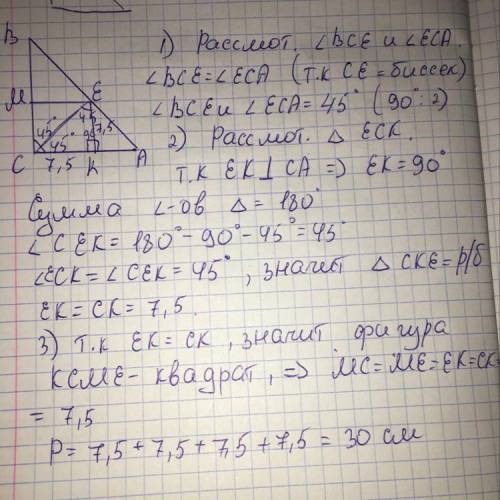 B
M
E
45°
7,5
45°
45°
90°
C
7,5
K
A
1) Рассмот. ∠BCE и ∠ECA.
∠BCE=∠ECA (т.к CE=биссек)
∠BCE и ∠ECA=45° (90°:2)
2) Рассмот. △ ECK.
т.к EK⊥CA => EK=90°
Сумма ∠-ов △=180°
∠CEK=180°-90°-45°=45°
∠ECK=∠CEK=45°, значит △ CKE=р/б
EK=CK=7,5.
3) т.к EK=CK, значит фигура
KCME-квадрат, => MC=ME=EK=CK=
=7,5
P=7,5+7,5+7,5+7,5=30 см